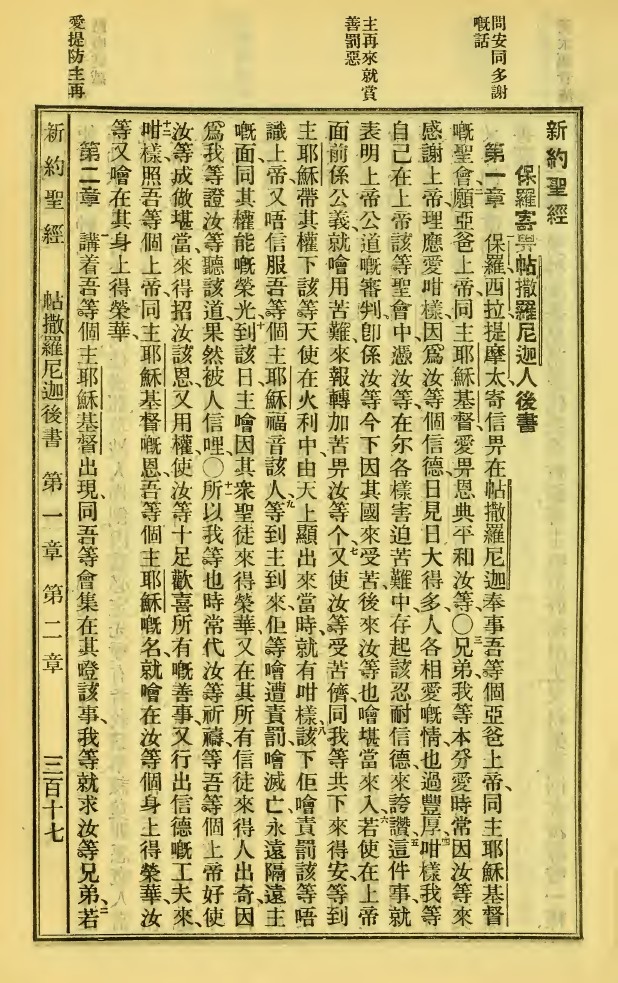 問安同多謝
嘅話
主再來就賞
善罰惡
愛提防主再
新約聖經
保羅寄畀帖撒羅尼迦人後書
第一章 保羅、西拉、提摩太、寄信畀在帖撒羅尼迦奉事吾等個亞爸上帝、同主耶穌基督
嘅聖會、二願亞爸上帝、同主耶穌基督、愛畀恩典平和汝等、〇三兄弟、我等本分愛時常因汝等來
感謝上帝、理應愛咁樣、因爲汝等個信德、日見日大得多、人各相愛嘅情也過豐厚、四咁樣我等
自己在上帝該等聖會中、憑汝等在尔各樣害迫苦難中、存起該忍耐信德來誇讚、五這件事、就
表明上帝公道嘅審判、卽係汝等今下因其國來受苦、後來汝等也噲堪當來入、六若使在上帝
面前係公義、就噲用苦難來報轉加苦畀汝等个、七又使汝等受苦儕、同我等共下來得安、等到
主耶穌帶其權下該等天使、在火利中、由天上顯出來當時、就有咁樣、八該下佢噲責罰該等唔
識上帝、又唔信服吾等個主耶穌福音該人、九等到主到來、佢等噲遭責罰、噲滅亡、永遠隔遠主
嘅面、同其權能嘅榮光、十到該日、主噲因其衆聖徒來得榮華、又在其所有信徒來得人出奇、因
爲我等證汝等聽該道、果然被人信哩、〇十一所以我等也時常代汝等祈禱、等吾等個上帝、好使
汝等成做堪當、來得招汝該恩、又用權、使汝等十足歡喜所有嘅善事、又行出信德嘅工夫來、
十二咁樣照吾等個上帝、同主耶穌基督嘅恩、吾等個主耶穌嘅名、就噲在汝等個身上得榮華、汝
等又噲在其身上得榮華、
第二章 一講着吾等個主耶穌基督出現、同吾等會集在其嶝該事、我等就求汝等兄弟、二若
新約聖經 帖撒羅尼迦後書 第一章 第二章 三百十七